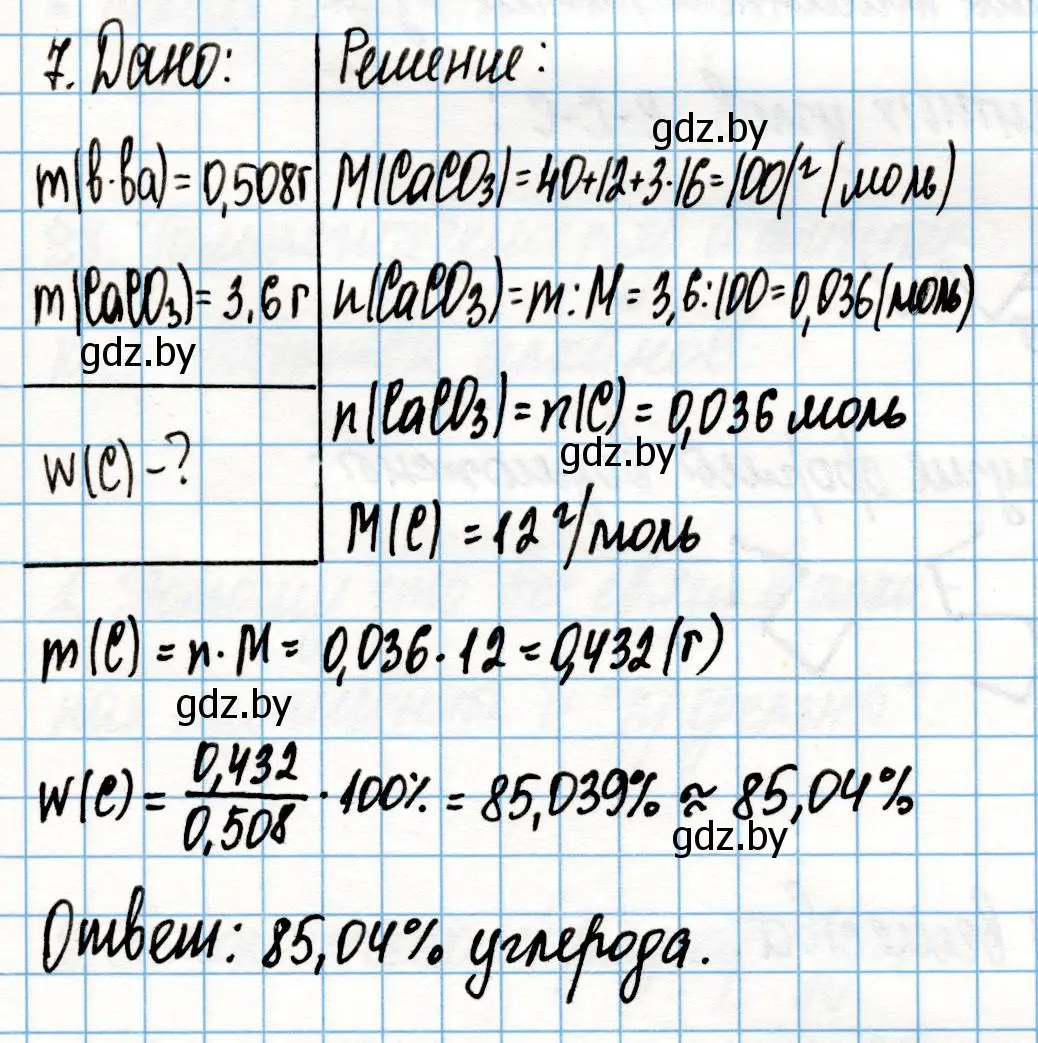 7. Дано:
Решение:
gdz.by
m(в-ва) = 0,508г
M(CaCO₃) = 40+12+3·16 = 100(г/моль)
m(CaCO₃) = 3,6 г
n(CaCO₃) = m : M = 3,6:100 = 0,036(моль)
gdz.by
n(CaCO₃) = n(C) = 0,036 моль
gdz.by
w(C) - ?
M(C) = 12 г/моль
m(C) = n · M = 0,036 · 12 = 0,432(г)
gdz.by
w(C) = 0,432/0,508 · 100% = 85,039% ≈ 85,04%
gdz.by
Ответ: 85,04% углерода.